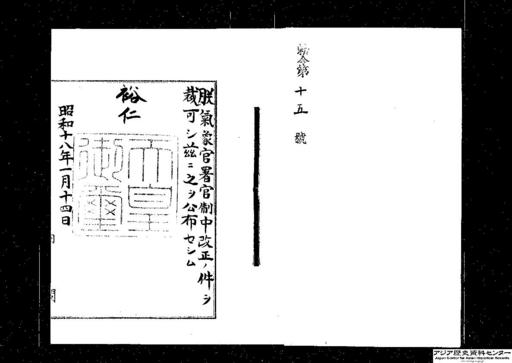 勅令第十五號
朕氣象官署官制中改正ノ件ヲ
裁可シ茲ニ之ヲ公布セシム
裕仁
天皇
御璽
昭和十八年一月十四日
アジア歴史資料センター
Japan Center for Asian Historical Records